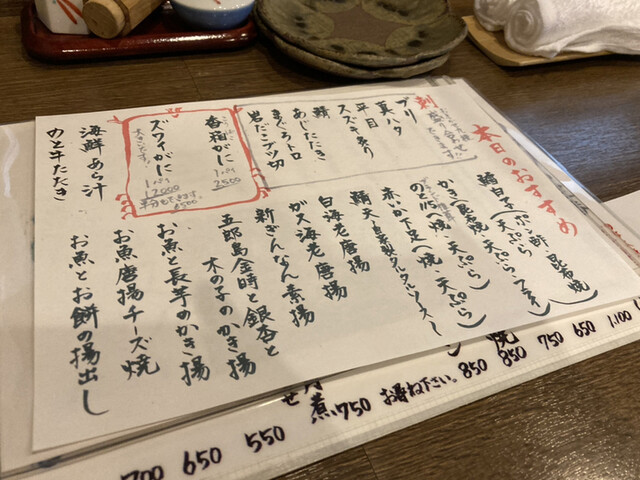 本日のおすすめ
刺
ブリ
真ハタ
平目
スズキ炙り
鯖
あじたたき
まぐろトロ
岩だこブツ切
香箱がに
1パイ
2500
ズワイがに
1パイ
17000
半分もできます
8500
海鮮あら汁
のと牛たたき
鱈白子(ポン酢、昆布焼
・天ぷら)
かき(昆布焼・天ぷら・フライ)
のど黒(焼・天ぷら)
赤いか下足(焼・天ぷら)
鯖天
白海老唐揚
ガス海老唐揚
新ぎんなん素揚
五郎島金時と銀杏と
木の子のかき揚
お魚と長芋のかき揚
お魚唐揚チーズ焼
お魚とお餅の揚出し
1,100
650
750
焼
850
850
お尋ね下さい。
煮
750
せ
550
650
700